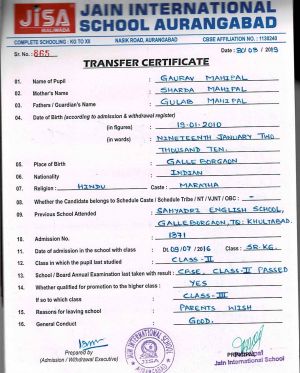 JISA
MALIWADA
JAIN INTERNATIONAL
SCHOOL AURANGABAD
COMPLETE SCHOOLING : KG TO XII NASIK ROAD, AURANGABAD CBSE AFFILIATION NO. : 1130240
Sr. No. : 865 Date : 30/09/2019
TRANSFER CERTIFICATE
01. Name of Pupil : GAURAV MAHIPAL
02. Mother's Name : SHARDA MAHIPAL
03. Fathers / Guardian's Name : GULAB MAHIPAL
04. Date of Birth (according to admission & withdrawal register)
(in figures) : 19-01-2010
(in words) : NINETEENTH JANUARY TWO
THOUSAND TEN.
05. Place of Birth : GALLEBORGAON
06. Nationality : INDIAN
07. Religion : HINDU Caste : MARATHA
08. Whether the Candidate belongs to Schedule Caste / Schedule Tribe / NT / VJNT / OBC : -
09. Previous School Attended : SAHYADRI ENGLISH SCHOOL,
GALLEBORGAON, TQ: KHULTABAD.
10. Admission No. : 1871
11. Date of admission in the school with class : Dt. 09/07/2016 Class : SR.KG.
12. Class in which the pupil last studied : CLASS-II
13. School / Board Annual Examination last taken with result : CBSE, CLASS-II PASSED
14. Whether qualified for promotion to the higher class : YES
If so to which class : CLASS-III
15. Reasons for leaving school : PARENTS WISH
16. General Conduct : GOOD.
Prepared by
(Admission / Withdrawal Executive)
JAIN INTERNATIONAL SCHOOL
JISA
Principal
Jain International School